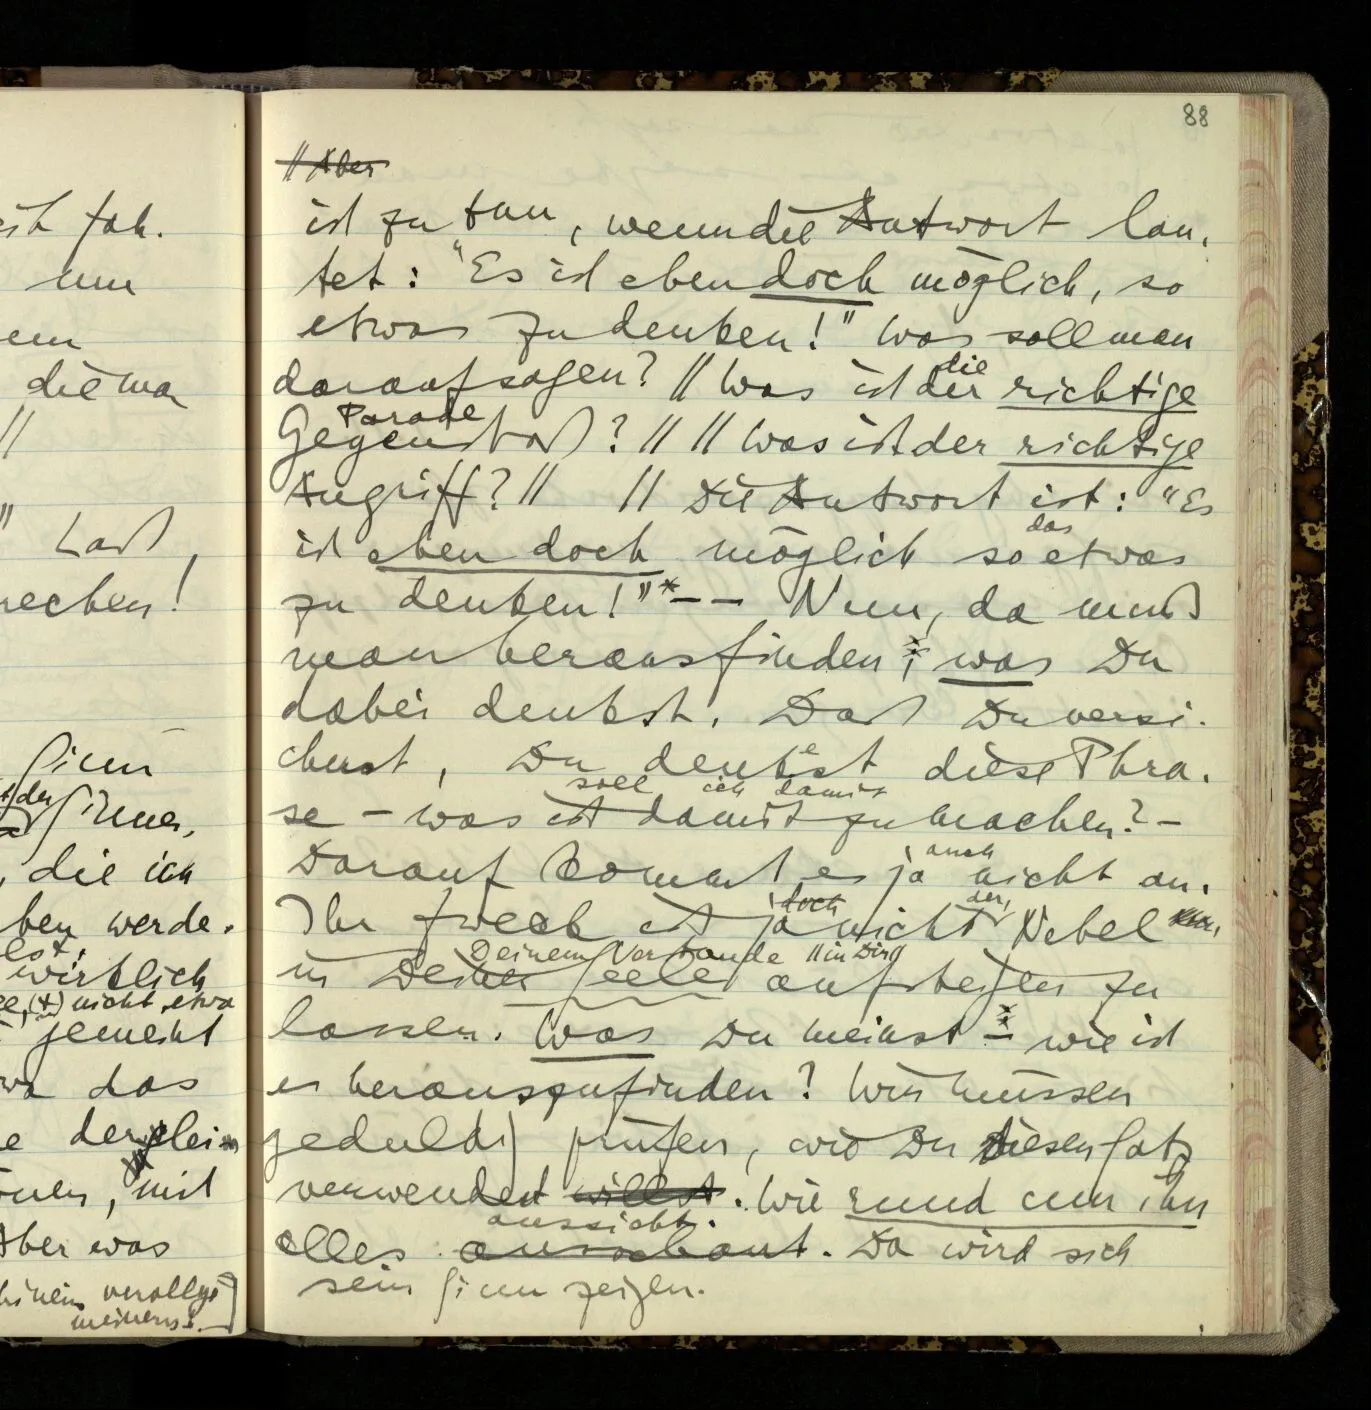 88
// Aber
ist zu tun, wenn die Antwort lau-
tet: "Es ist eben doch möglich, so
etwas zu denken!" Was soll man
die
darauf sagen? // Was ist der richtige
Parade
Gegenstoß? // // Was ist der richtige
Angriff? // // Die Antwort ist: "Es
das
ist eben doch möglich so etwas
zu denken!" * – – Nun, da muß
man herausfinden, was Du
dabei denkst. Daß Du versi-
e
cherst, Du denkst diese Phra-
soll ich damit
se – was ist damit zu machen? –
auch
Darauf kommt es ja nicht an.
doch der,
Ihr Zweck ist ja nicht Nebel
Deinem Verstande // in Dir
in Deiner Seele aufsteigen zu
lassen. Was Du meinst – wie ist
es herauszufinden? Wir müssen
geduldig prüfen, wie Du diesen Satz
verwendest willst. Wie rund um ihn
aussieht.
alles ausschaut. Da wird sich
sein Sinn zeigen.
um
die
//
Laß,
Sinn
der
, die ich
ben werde.
wirklich
nicht etwa
gemeint
das
, mit
Aber was